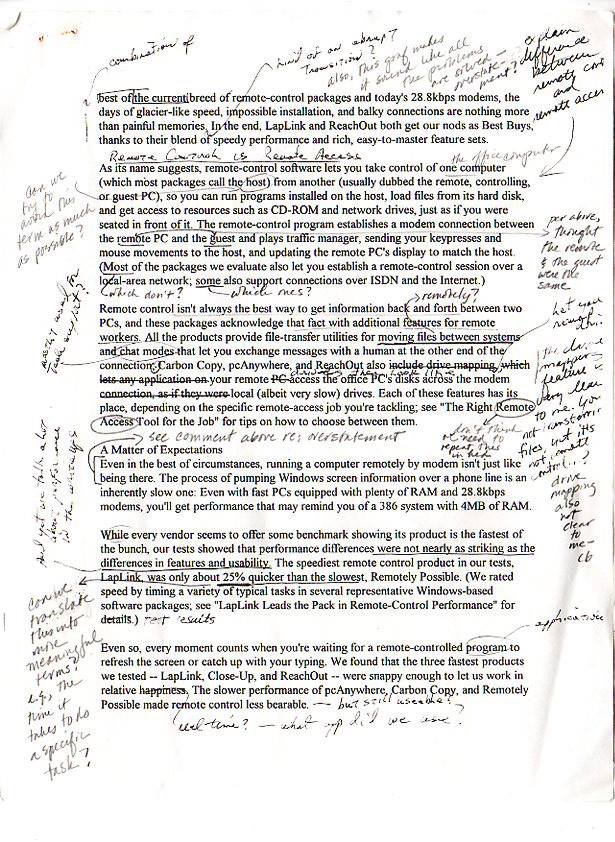 combination of
kind of an abrupt
transition?
also, this graf makes
it sound like all
the problems
are solved —
overstate-
ment?
explain
difference
between
remote con
and
remote access
best of the current breed of remote-control packages and today's 28.8kbps modems, the
days of glacier-like speed, impossible installation, and balky connections are nothing more
than painful memories. In the end, LapLink and ReachOut both get our nods as Best Buys,
thanks to their blend of speedy performance and rich, easy-to-master feature sets.
Remote Control is Remote Access
the office computer
As its name suggests, remote-control software lets you take control of one computer
(which most packages call the host) from another (usually dubbed the remote, controlling,
or guest PC), so you can run programs installed on the host, load files from its hard disk,
and get access to resources such as CD-ROM and network drives, just as if you were
seated in front of it. The remote-control program establishes a modem connection between
the remote PC and the guest and plays traffic manager, sending your keypresses and
mouse movements to the host, and updating the remote PC's display to match the host.
(Most of the packages we evaluate also let you establish a remote-control session over a
local-area network; some also support connections over ISDN and the Internet.)
can we
try to
avoid this
term as much
as possible?
per above,
thought
the remote
& the guest
were the
same
which don't?
which ones?
remotely?
Remote control isn't always the best way to get information back and forth between two
PCs, and these packages acknowledge that fact with additional features for remote
workers. All the products provide file-transfer utilities for moving files between systems
and chat modes that let you exchange messages with a human at the other end of the
connection. Carbon Copy, pcAnywhere, and ReachOut also include drive mapping, which
lets any application on your remote PC access the office PC's disks across the modem
connection, as if they were local (albeit very slow) drives. Each of these features has its
place, depending on the specific remote-access job you're tackling; see "The Right Remote
Access Tool for the Job" for tips on how to choose between them.
the drive
mapping
feature is
very
to me. you
files, but it's
drive
mapping
also
not
clear
to
me—
cb
don't think
we need to
repeat this
in hed
see comment above re: overstatement
A Matter of Expectations
Even in the best of circumstances, running a computer remotely by modem isn't just like
being there. The process of pumping Windows screen information over a phone line is an
inherently slow one: Even with fast PCs equipped with plenty of RAM and 28.8kbps
modems, you'll get performance that may remind you of a 386 system with 4MB of RAM.
And yet we talk a lot
about performance
in the
While every vendor seems to offer some benchmark showing its product is the fastest of
the bunch, our tests showed that performance differences were not nearly as striking as the
differences in features and usability. The speediest remote control product in our tests,
LapLink, was only about 25% quicker than the slowest, Remotely Possible. (We rated
speed by timing a variety of typical tasks in several representative Windows-based
software packages; see "LapLink Leads the Pack in Remote-Control Performance" for
details.) test results
can we
translate
this into
more
meaningful
terms?
e.g., the
time it
takes to do
a specific
task?
application
Even so, every moment counts when you're waiting for a remote-controlled program to
refresh the screen or catch up with your typing. We found that the three fastest products
we tested -- LapLink, Close-Up, and ReachOut -- were snappy enough to let us work in
relative happiness. The slower performance of pcAnywhere, Carbon Copy, and Remotely
Possible made remote control less bearable. — but still useable?
real-time? — what app did we use?